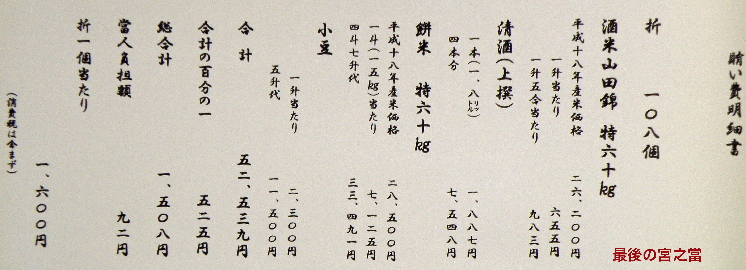 賄い費明細書
折　一〇八個
酒米山田錦　特六十kg
平成十八年産米価格　二六、二〇〇円
一升当たり　六五五円
一升五合当たり　九八三円
清酒(上撰)
一本(一、八リットル)　一、八八七円
四本分　七、五四八円
餅米　特六十kg
平成十八年産米価格　二八、五〇〇円
一斗(一五kg)当たり　七、一二五円
四斗七升代　三三、四九一円
小豆
一升当たり　二、三〇〇円
五升代　一一、五〇〇円
合計　五二、五三九円
合計の百分の一　五二五円
総合計　一、五〇八円
當人負担額　九二円
折一個当たり　一、六〇〇円
(消費税は含まず)
最後の宮之當